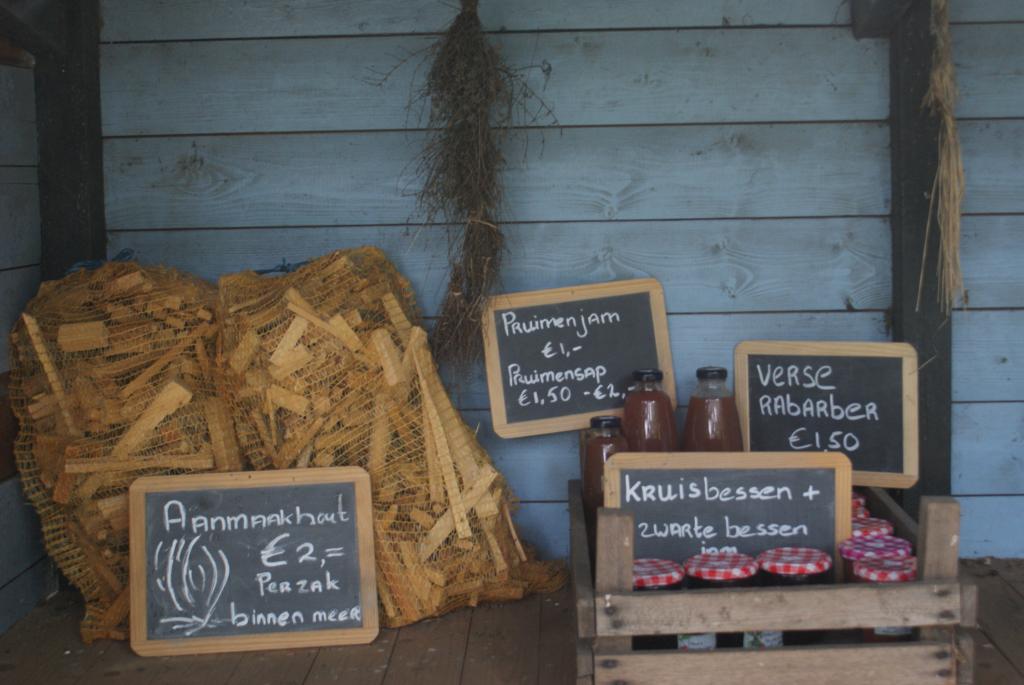 Aanmaakhout
€ 2,=
Per zak
binnen meer
Pruimenjam
€1,-
Pruimensap
€1,50 - €2,-
VERSE
RABARBER
€1,50
Kruisbessen +
zwarte bessen
jam